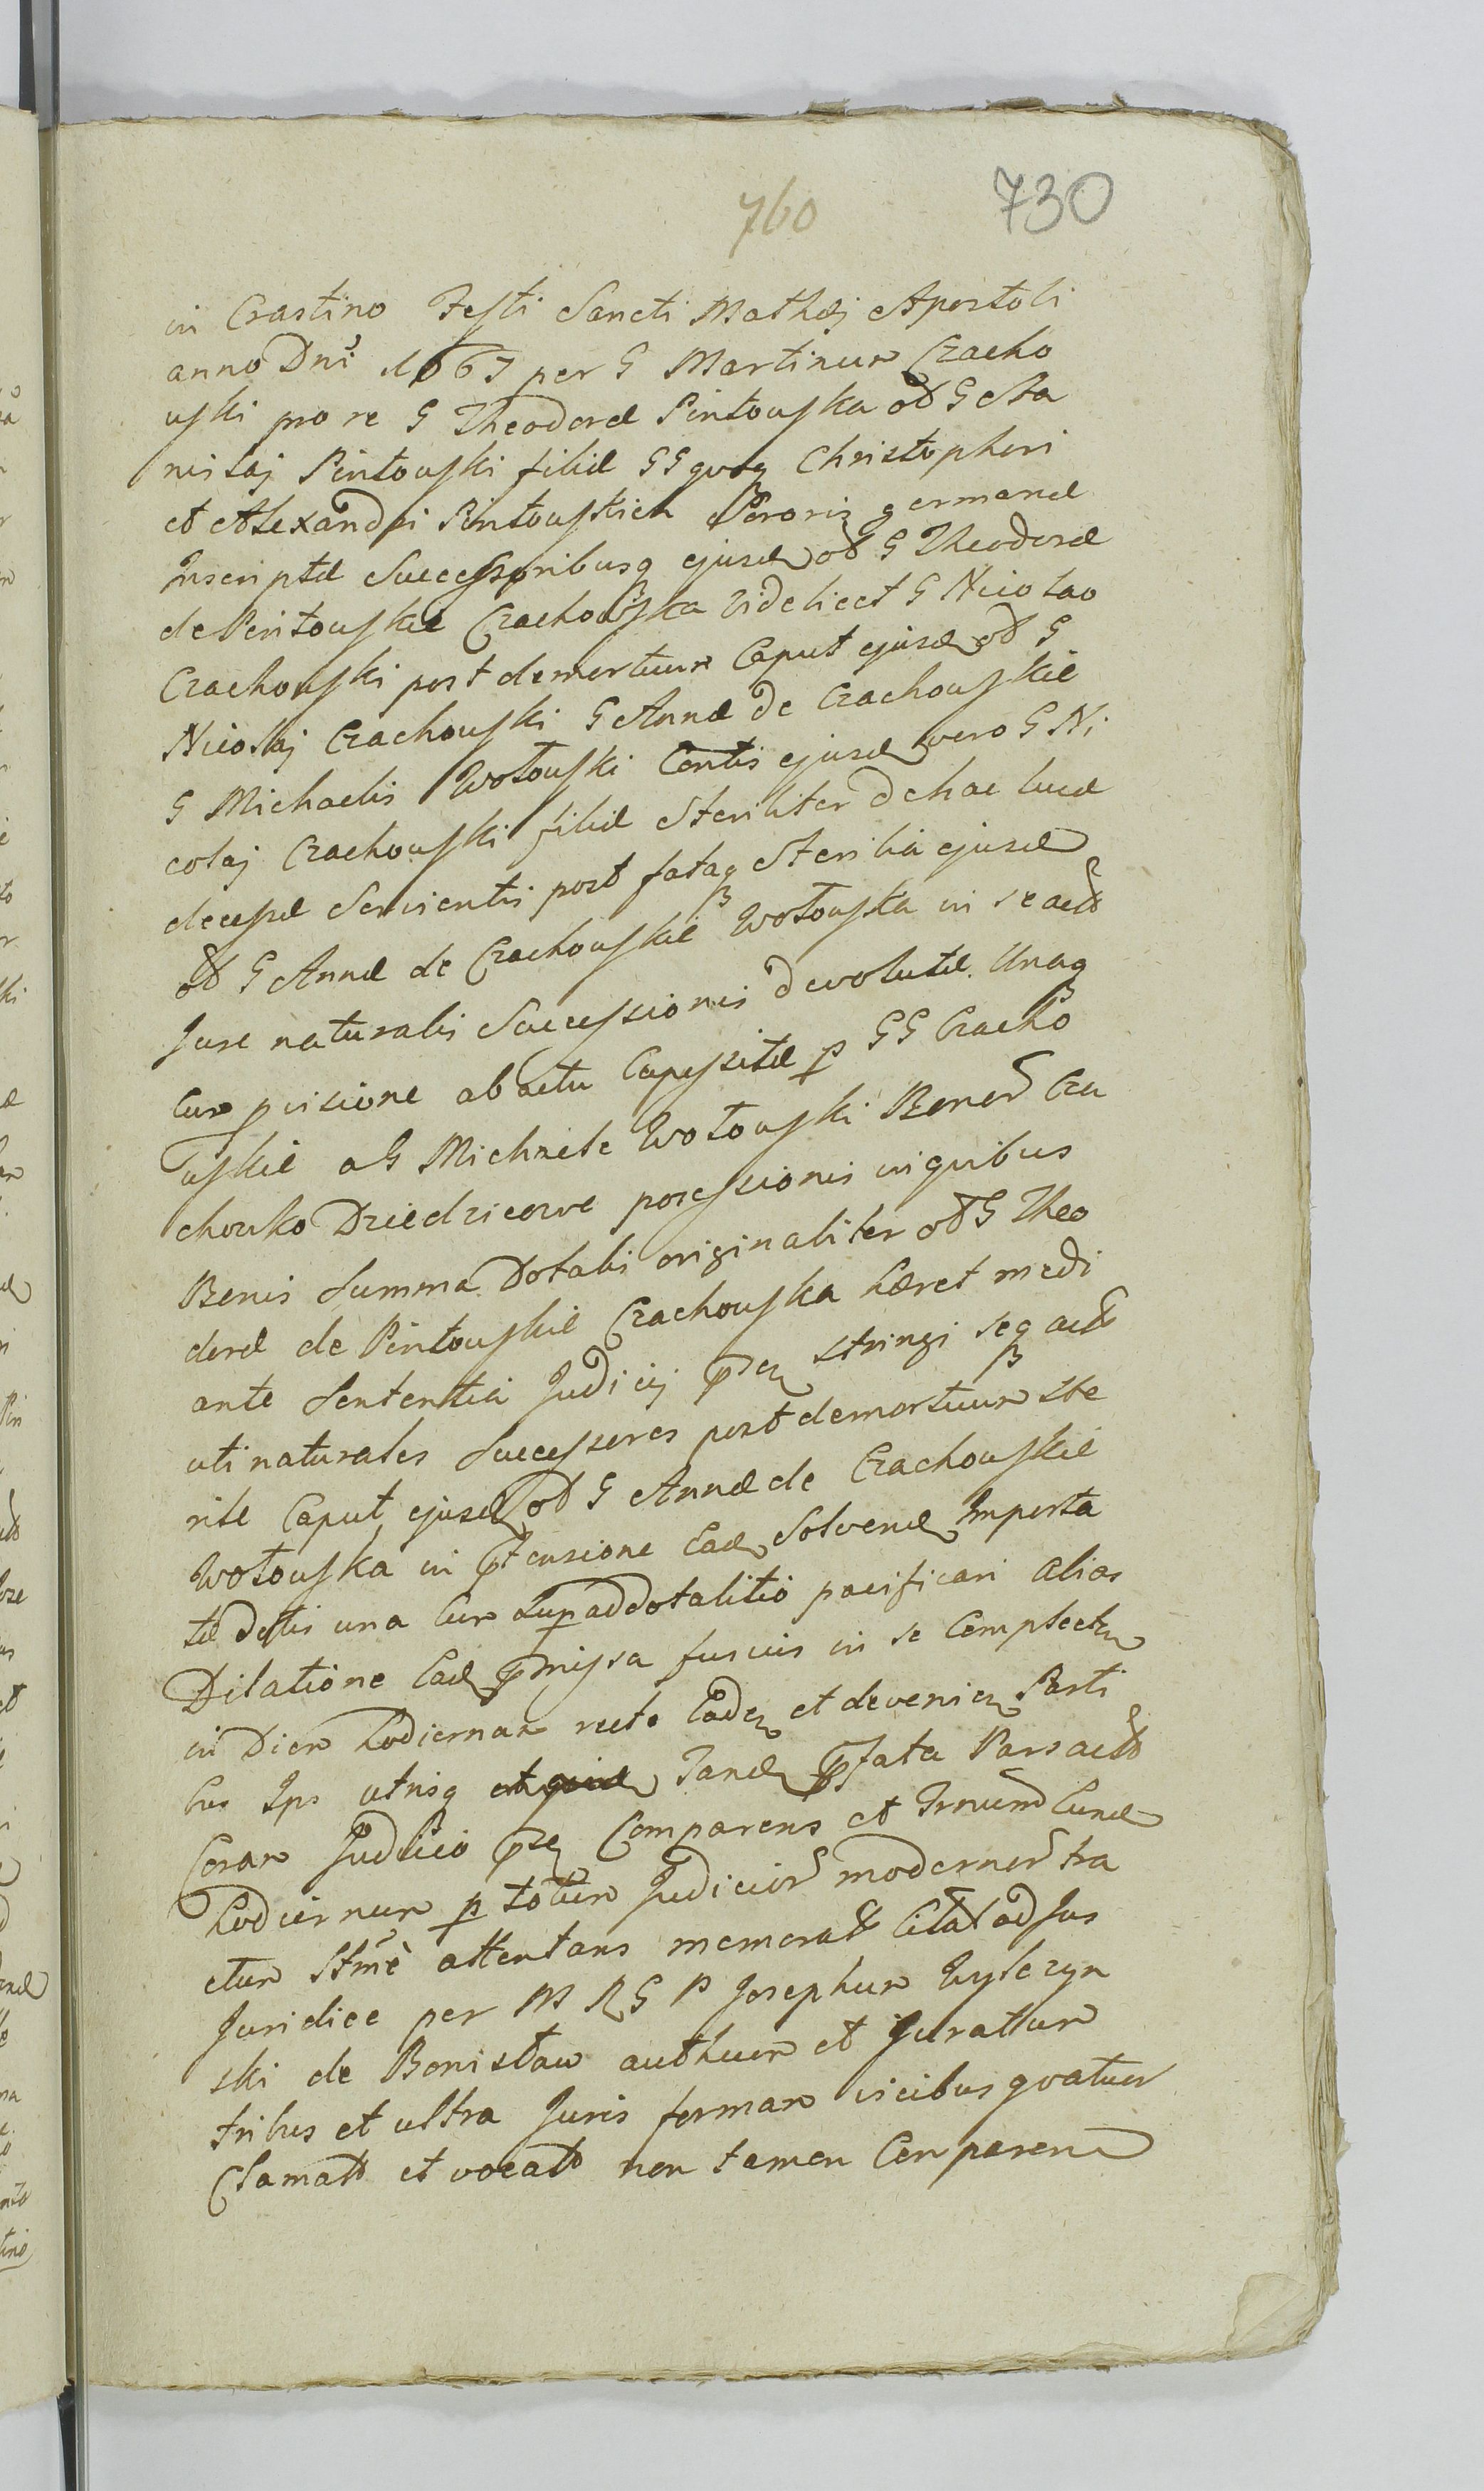 760 730
in Crastino Festi Sancti Mathæj Apostoli
anno Dni 1667 per G Martinum Czacho
wski pro re G Theodoræ Pintowska od G Sta
nislaj Pintowski filiæ GG quoq Christopheri
et Alexandri Pintowskich Sororis germanæ
Inscriptæ Successoribusq ejusd od G Theodoræ
de Pintowskie Czachowska videlicet G Nicolao
Czachowski post demortuum Caput ejusd od G
Nicolaj Czachowski G Annæ de Czachowskie
G Michaelis Wotowski Contis ejusd vero G Ni
colaj Czachowski filiæ Steriliter de hac luce
decessæ Servientis post fataq Sterilia ejusd
od G Annæ de Czachowskie Wotowska in se act
Jure naturalis Successionis devolutæ Unaq
cum pvisione ab actu Capessitæ p GG Czacho
wskie a G Michaele Wotowski Bonor Cza
chowko Dziedzicowe possessionis in quibus
Bonis Summa Dotalis originaliter od G Theo
doræ de Pintowskie Czachowska hæret medi
ante Sententia Judicij stringi seq act
uti naturales Successores post demortuum ste
rile Caput ejusd od G Annæ de Czachowskie
Wotowska in ptensione Ead Solvend Importa
tæ Dotis una Cum Supaddotalitio pacificari alias
Dilatione Ead pmissa fusius in se Complecten
in Diem hodiernam recte Caden et devenien Parti
bus Ips utrisq Tand pfata Pars act
Coram Judicio Comparens et Trnum Eund
hodiernum p totum Judicior modernor tra
ctum Sttme attentans memorat Citat ad Jus
Juridice per M R G P Josephum Wyleżyn
ski de Bonisław authum et Juratum
tribus et ultra Juris formam vicibus quatuor
Clamat et vocat non tamen Comparen